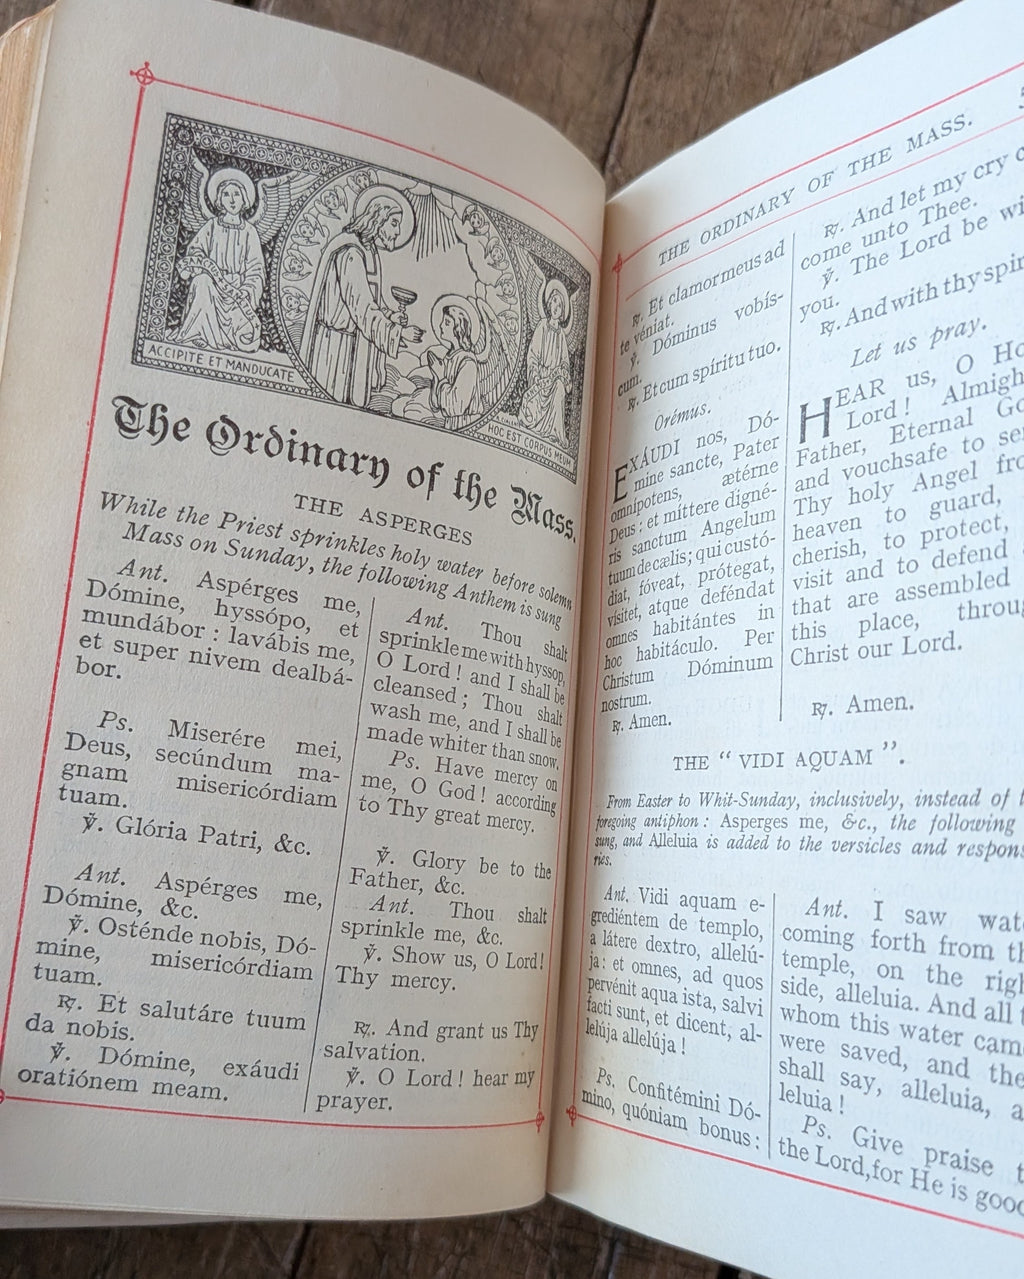 ACCIPITE ET MANDUCATE
HOC EST CORPUS MEUM
The Ordinary of the Mass.
THE ASPERGES
While the Priest sprinkles holy water before solemn
Mass on Sunday, the following Anthem is sung
Ant. Aspérges me,
Dómine, hyssópo, et
mundábor : lavábis me,
et super nivem dealbá-
bor.
Ps. Miserére mei,
Deus, secúndum ma-
gnam misericórdiam
tuam.
℣. Glória Patri, &c.
Ant. Aspérges me,
Dómine, &c.
℣. Osténde nobis, Dó-
mine, misericórdiam
tuam.
℟. Et salutáre tuum
da nobis.
℣. Dómine, exáudi
oratiónem meam.
Ant. Thou shalt
sprinkle me with hyssop,
O Lord ! and I shall be
cleansed ; Thou shalt
wash me, and I shall be
made whiter than snow.
Ps. Have mercy on
me, O God ! according
to Thy great mercy.
℣. Glory be to the
Father, &c.
Ant. Thou shalt
sprinkle me, &c.
℣. Show us, O Lord !
Thy mercy.
℟. And grant us Thy
salvation.
℣. O Lord ! hear my
prayer.
THE ORDINARY OF THE MASS.
℟. Et clamor meus ad
te véniat.
℣. Dóminus vobís-
cum.
℟. Et cum spíritu tuo.
Orémus.
EXÁUDI nos, Dó-
mine sancte, Pater
omnípotens, ætérne
Deus : et míttere digné-
ris sanctum Angelum
tuum de cælis; qui custó-
diat, fóveat, prótegat,
vísitet, atque deféndat
omnes habitántes in
hoc habitáculo. Per
Christum Dóminum
nostrum.
℟. Amen.
℟. And let my cry
come unto Thee.
℣. The Lord be
you.
℟. And with thy
Let us pray.
HEAR us, O
Lord !
Father, Eternal
and vouchsafe to
Thy holy Angel
heaven to guard,
cherish, to protect,
visit and to defend
that are assembled
this place,
Christ our Lord.
℟. Amen.
THE “ VIDI AQUAM ”.
From Easter to Whit-Sunday, inclusively, instead of
foregoing antiphon : Asperges me, &c., the following
sung, and Alleluia is added to the versicles and
ries.
Ant. Vidi aquam e-
grediéntem de templo,
a látere dextro, allelú-
ja : et omnes, ad quos
pervénit aqua ista, salvi
facti sunt, et dicent, al-
lelúja allelúja !
Ps. Confitémini Dó-
mino, quóniam bonus :
Ant. I saw
coming forth from
temple, on the
side, alleluia. And all
whom this water
were saved, and
shall say, alleluia,
leluia !
Ps. Give praise
the Lord, for He is